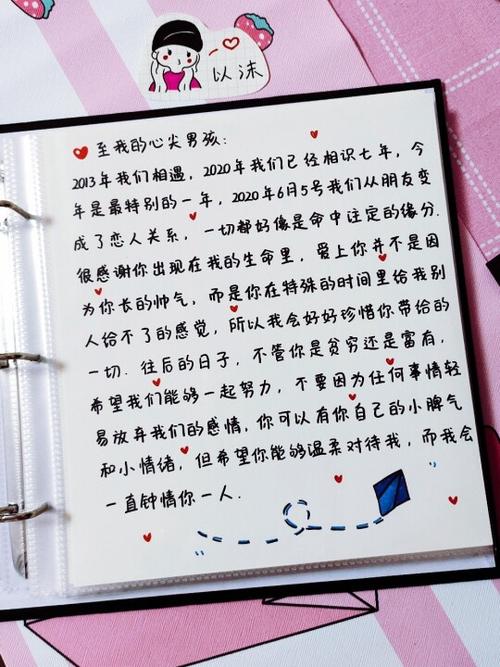 以沫
至我的心尖男孩：
2013年我们相遇，2020年我们已经相识七年，今
年是最特别的一年，2020年6月5号我们从朋友变
成了恋人关系，一切都好像是命中注定的缘分.
很感谢你出现在我的生命里，爱上你并不是因
为你长的帅气，而是你在特殊的时间里给我别
人给不了的感觉，所以我会好好珍惜你带给的
一切.往后的日子，不管你是贫穷还是富有，
希望我们能够一起努力，不要因为任何事情轻
易放弃我们的感情，你可以有你自己的小脾气
和小情绪，但希望你能够温柔对待我，而我会
一直钟情你一人.